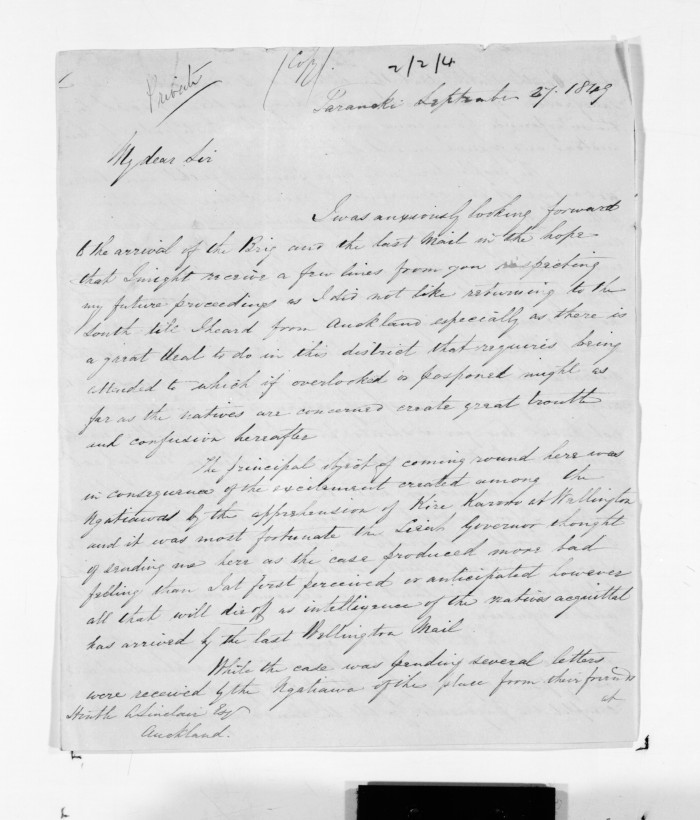 Private
(Copy).
2/2/4
Taranaki September 27. 1849
My dear Sir
I was anxiously looking forward
to the arrival of the Brig and the last Mail in the hope
that I might receive a few lines from you respecting
my future proceedings as I did not like returning to the
South till I heard from Auckland especially as there is
a great deal to do in this district that requires being
attended to which if overlooked or posponed might as
far as the natives are concerned create great trouble
and confusion hereafter
The principal object of coming round here was
in consequence of the excitement created among the
Ngatiawas by the apprehension of Kire Karoro at Wellington
and it was most fortunate the Lieut Governor thought
of sending me here as the case produced more bad
feeling than I at first perceived or anticipated however
all that will die off as intelligence of the natives acquittal
has arrived by the last Wellington Mail.
While the case was pending several letters
were received by the Ngatiawa of this place from their friends
at
Sinclair Esq
Auckland.